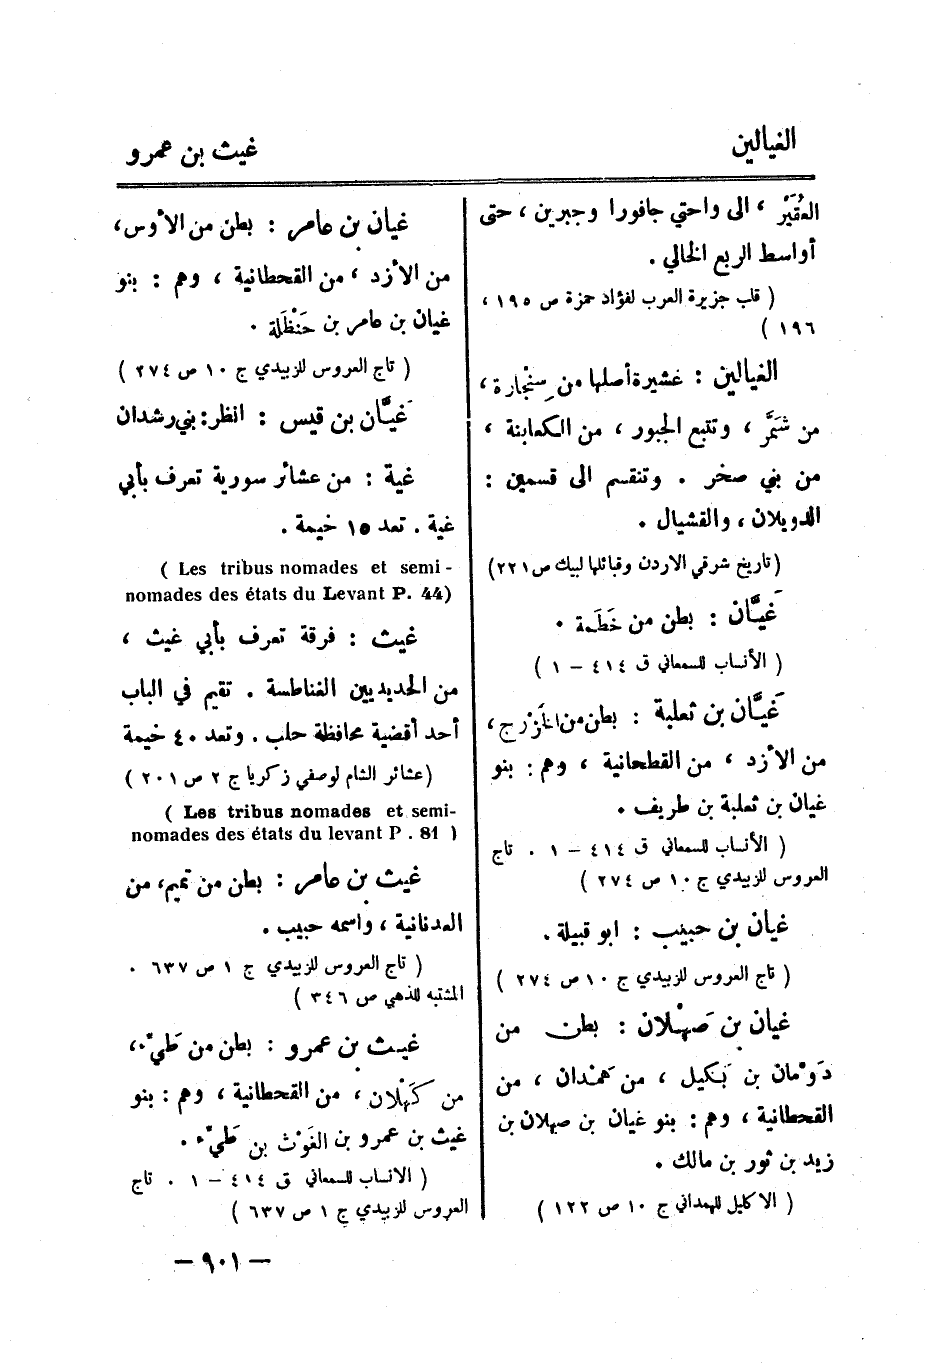 الغيالين
غيث بن عمرو
العُقَيْر ، الى واحتي جافورا وجبرين ، حتى
أواسط الربع الخالي .
( قلب جزيرة العرب لفؤاد حمزة ص ١٩٥ ،
١٩٦ )
الغيالين : غشيرة أصلها من سِنْجارة ،
من شَمَّر ، وتتبع الجبور ، من الكعابنة ،
من بني صخر . وتنقسم الى قسمين :
الدويلان ، والقشيال .
(تاريخ شرقي الاردن وقبائلها لبيك ص ٢٢١)
غَيَّان : بطن من خَطَمة .
( الأنساب للسمعاني ق ٤١٤ – ١ )
غَيَّان بن ثعلبة : بطن من الخَزْرج ،
من الأزد ، من القطحانية ، وهم : بنو
غيان بن ثعلبة بن طريف .
( الأنساب للسمعاني ق ٤١٤ – ١ . تاج
العروس للزبيدي ج ١٠ ص ٢٧٤ )
غيان بن حبيب : ابو قبيلة .
( تاج العروس للزبيدي ج ١٠ ص ٢٧٤ )
غيان بن صَهْلان : بطن من
دَوْمان بن بَكيل ، من هَمْدان ، من
القحطانية ، وهم : بنو غيان بن صهلان بن
زيد بن ثور بن مالك .
( الاكليل للهمداني ج ١٠ ص ١٢٢ )
غيان بن عامر : بطن من الأوس ،
من الأزد ، من القحطانية ، وهم : بنو
غيان بن عامر بن حَنْظَلة .
( تاج العروس للزبيدي ج ١٠ ص ٢٧٤ )
غَيَّان بن قيس : انظر : بني رشدان
غية : من عشائر سورية تعرف بأبي
غية . تعد ١٥ خيمة .
( Les tribus nomades et semi -
nomades des états du Levant P. 44)
غيث : فرقة تعرف بأبي غيث ،
من الحديديين الغناطسة . تقيم في الباب
أحد أقضية محافظة حلب . وتعد ٤٠ خيمة
(عشائر الشام لوصفي زكريا ج ٢ ص ٢٠١ )
( Les tribus nomades et semi-
nomades des états du levant P . 81 )
غيث بن عامر : بطن من تميم، من
العدنانية ، واسمه حبيب .
( تاج العروس للزبيدي ج ١ ص ٦٣٧ .
المشتبه للذهي ص ٣٤٦ )
غيث بن عمرو : بطن من طَيّء ،
من كَهْلان ، من القحطانية ، وهم : بنو
غيث بن عمرو بن الغَوْث بن طَيّء .
( الانساب للسمعاني ق ٤١٤ – ١ . تاج
العروس للزبيدي ج ١ ص ٦٣٧ )
– ٩٠١ –